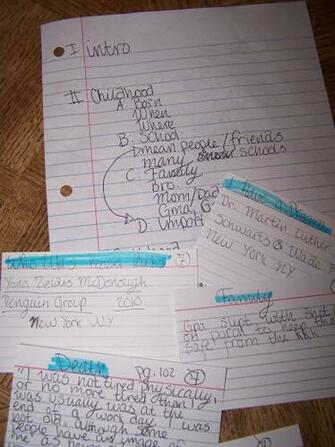 I intro
II Childhood
A. Born
When
Where
B. School
mean people/friends
many schools
C. Family
Bro.
Mom/Dad
Gma, G
D. Import
Who Was Rosa Parks
(7)
Yona Zeldis McDonough
Penguin Group 2010
New York NY
I Have a Dream
Dr. Martin Luther
Schwartz & Wade
New York NY
Family
Gpa slept with shot
on porch to keep the
safe from the KKK
Death
pg. 102
"I was not tired physically,
or no more tired than I
was usually was at the
end of a work day. I was
not old, although some
people have an image of
me as